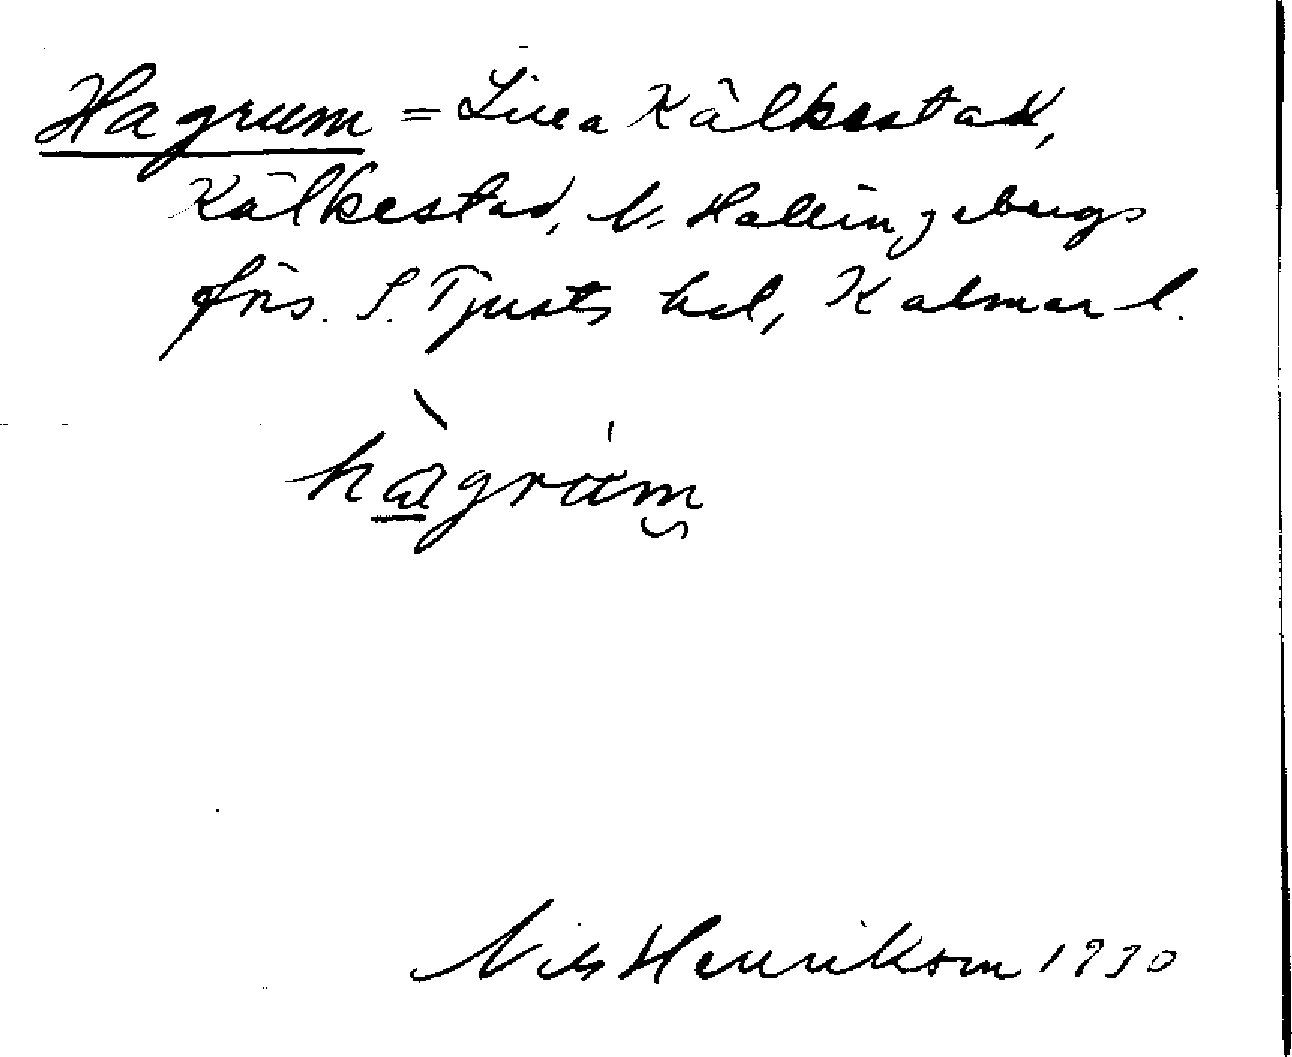 Hagrum = Lilla Kälkestad,
Kälkestad, V. Hallingebergs
förs. S. Tjusts hd, Kalmar l.
hàgrúm
Nils Henrikson 1930